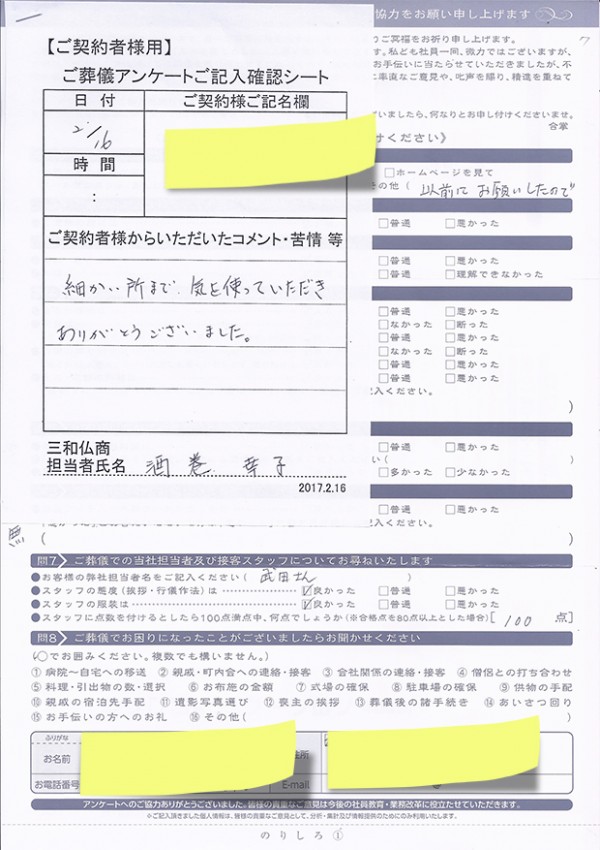 協力をお願い申し上げます
うご冥福をお祈り申し上げます。
す。私ども社員一同、微力ではございますが、
お手伝いに当たらせていただきましたが、不
に率直なご意見や、叱声を賜り、精進を重ねて
いましたら、何なりとお申し付けくださいませ。
合掌
けください》
【ご契約者様用】
ご葬儀アンケートご記入確認シート
日付 ご契約様ご記名欄
2/16
時間
:
ご契約者様からいただいたコメント・苦情 等
細かい所まで、気を使っていただき
ありがとうございました。
三和仏商
担当者氏名 酒巻 幸子
2017.2.16
□ホームページを見て
その他( 以前にお願いしたので
□普通 □悪かった
□普通 □悪かった
□普通 □悪かった
□普通 □理解できなかった
□普通 □悪かった
□なかった □断った
□普通 □悪かった
□なかった □断った
□普通 □悪かった
□普通 □悪かった
記入ください。
)
□普通 □悪かった
い(
□多かった □少なかった
□普通 □悪かった
記入ください。
( )
問7 ご葬儀での当社担当者及び接客スタッフについてお尋ねいたします
●お客様の弊社担当者名をご記入ください( 武田さん )
●スタッフの態度(挨拶・行儀作法)は ☑良かった □普通 □悪かった
●スタッフの服装は ☑良かった □普通 □悪かった
●スタッフに点数を付けるとしたら100点満点中、何点でしょうか(※合格点を80点以上とした場合)[ 100 点]
問8 ご葬儀でお困りになったことがございましたらお聞かせください
(○でお囲みください。複数でも構いません。)
①病院~自宅への移送 ②親戚・町内会への連絡・接客 ③会社関係の連絡・接客 ④僧侶との打ち合わせ
⑤料理・引出物の数・選択 ⑥お布施の金額 ⑦式場の確保 ⑧駐車場の確保 ⑨供物の手配
⑩親戚の宿泊先手配 ⑪遺影写真選び ⑫喪主の挨拶 ⑬葬儀後の諸手続き ⑭おいさつ回り
⑮お手伝いの方へのお礼 ⑯その他( )
ふりがな
お名前
住所
お電話番号
E-mail
アンケートへのご協力ありがとうございました。皆様の貴重なご意見は今後の社員教育・業務改革に役立たせていただきます。
※ご記入頂きました個人情報は、皆様の貴重なご意見として、分析・集計及び情報提供のためにのみ利用いたします。
のりしろ①